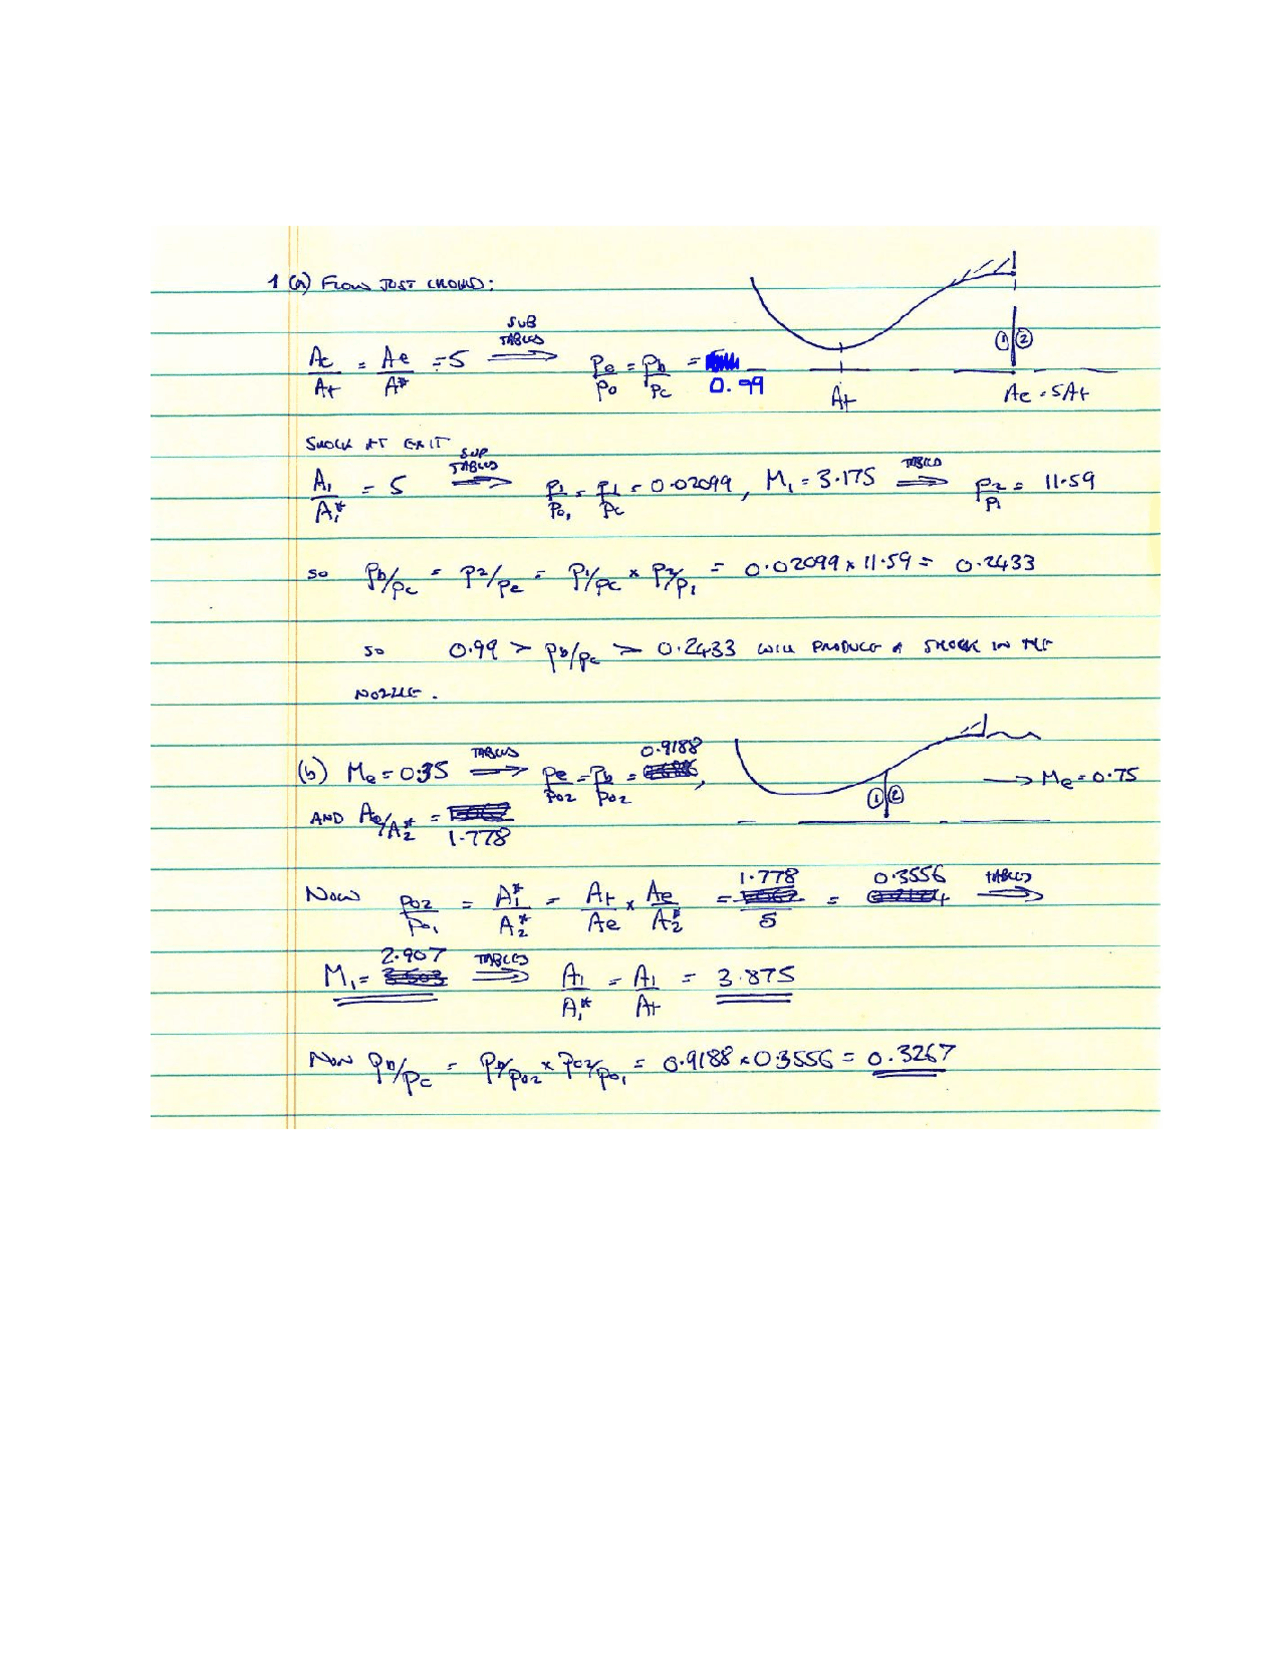 1 (a) FLOW JUST CHOKED:
Ae/At = Ae/A* = 5 SUB TABLES ⟹ Pe/Po = Pb/Pc = 0.99
At Ae = 5At
① ②
SHOCK AT EXIT
A1/A1* = 5 SUP TABLES ⟹ P1/Po1 = P1/Pc = 0.02099, M1 = 3.175 TABLES ⟹ P2/P1 = 11.59
SO Pb/Pc = P2/Pc = P1/Pc × P2/P1 = 0.02099 × 11.59 = 0.2433
SO 0.99 > Pb/Pc > 0.2433 WILL PRODUCE A SHOCK IN THE
NOZZLE.
(b) Me = 0.35 TABLES ⟹ Pe/Po2 = Pb/Po2 = 0.9188,
① ② → Me = 0.75
AND Ae/A2* = 1.778
NOW Po2/Po1 = A1*/A2* = At/Ae × Ae/A2* = 1.778/5 = 0.3556 TABLES ⟹
M1 = 2.907 TABLES ⟹ A1/A1* = A1/At = 3.875
NOW Pb/Pc = Pb/Po2 × Po2/Po1 = 0.9188 × 0.3556 = 0.3267